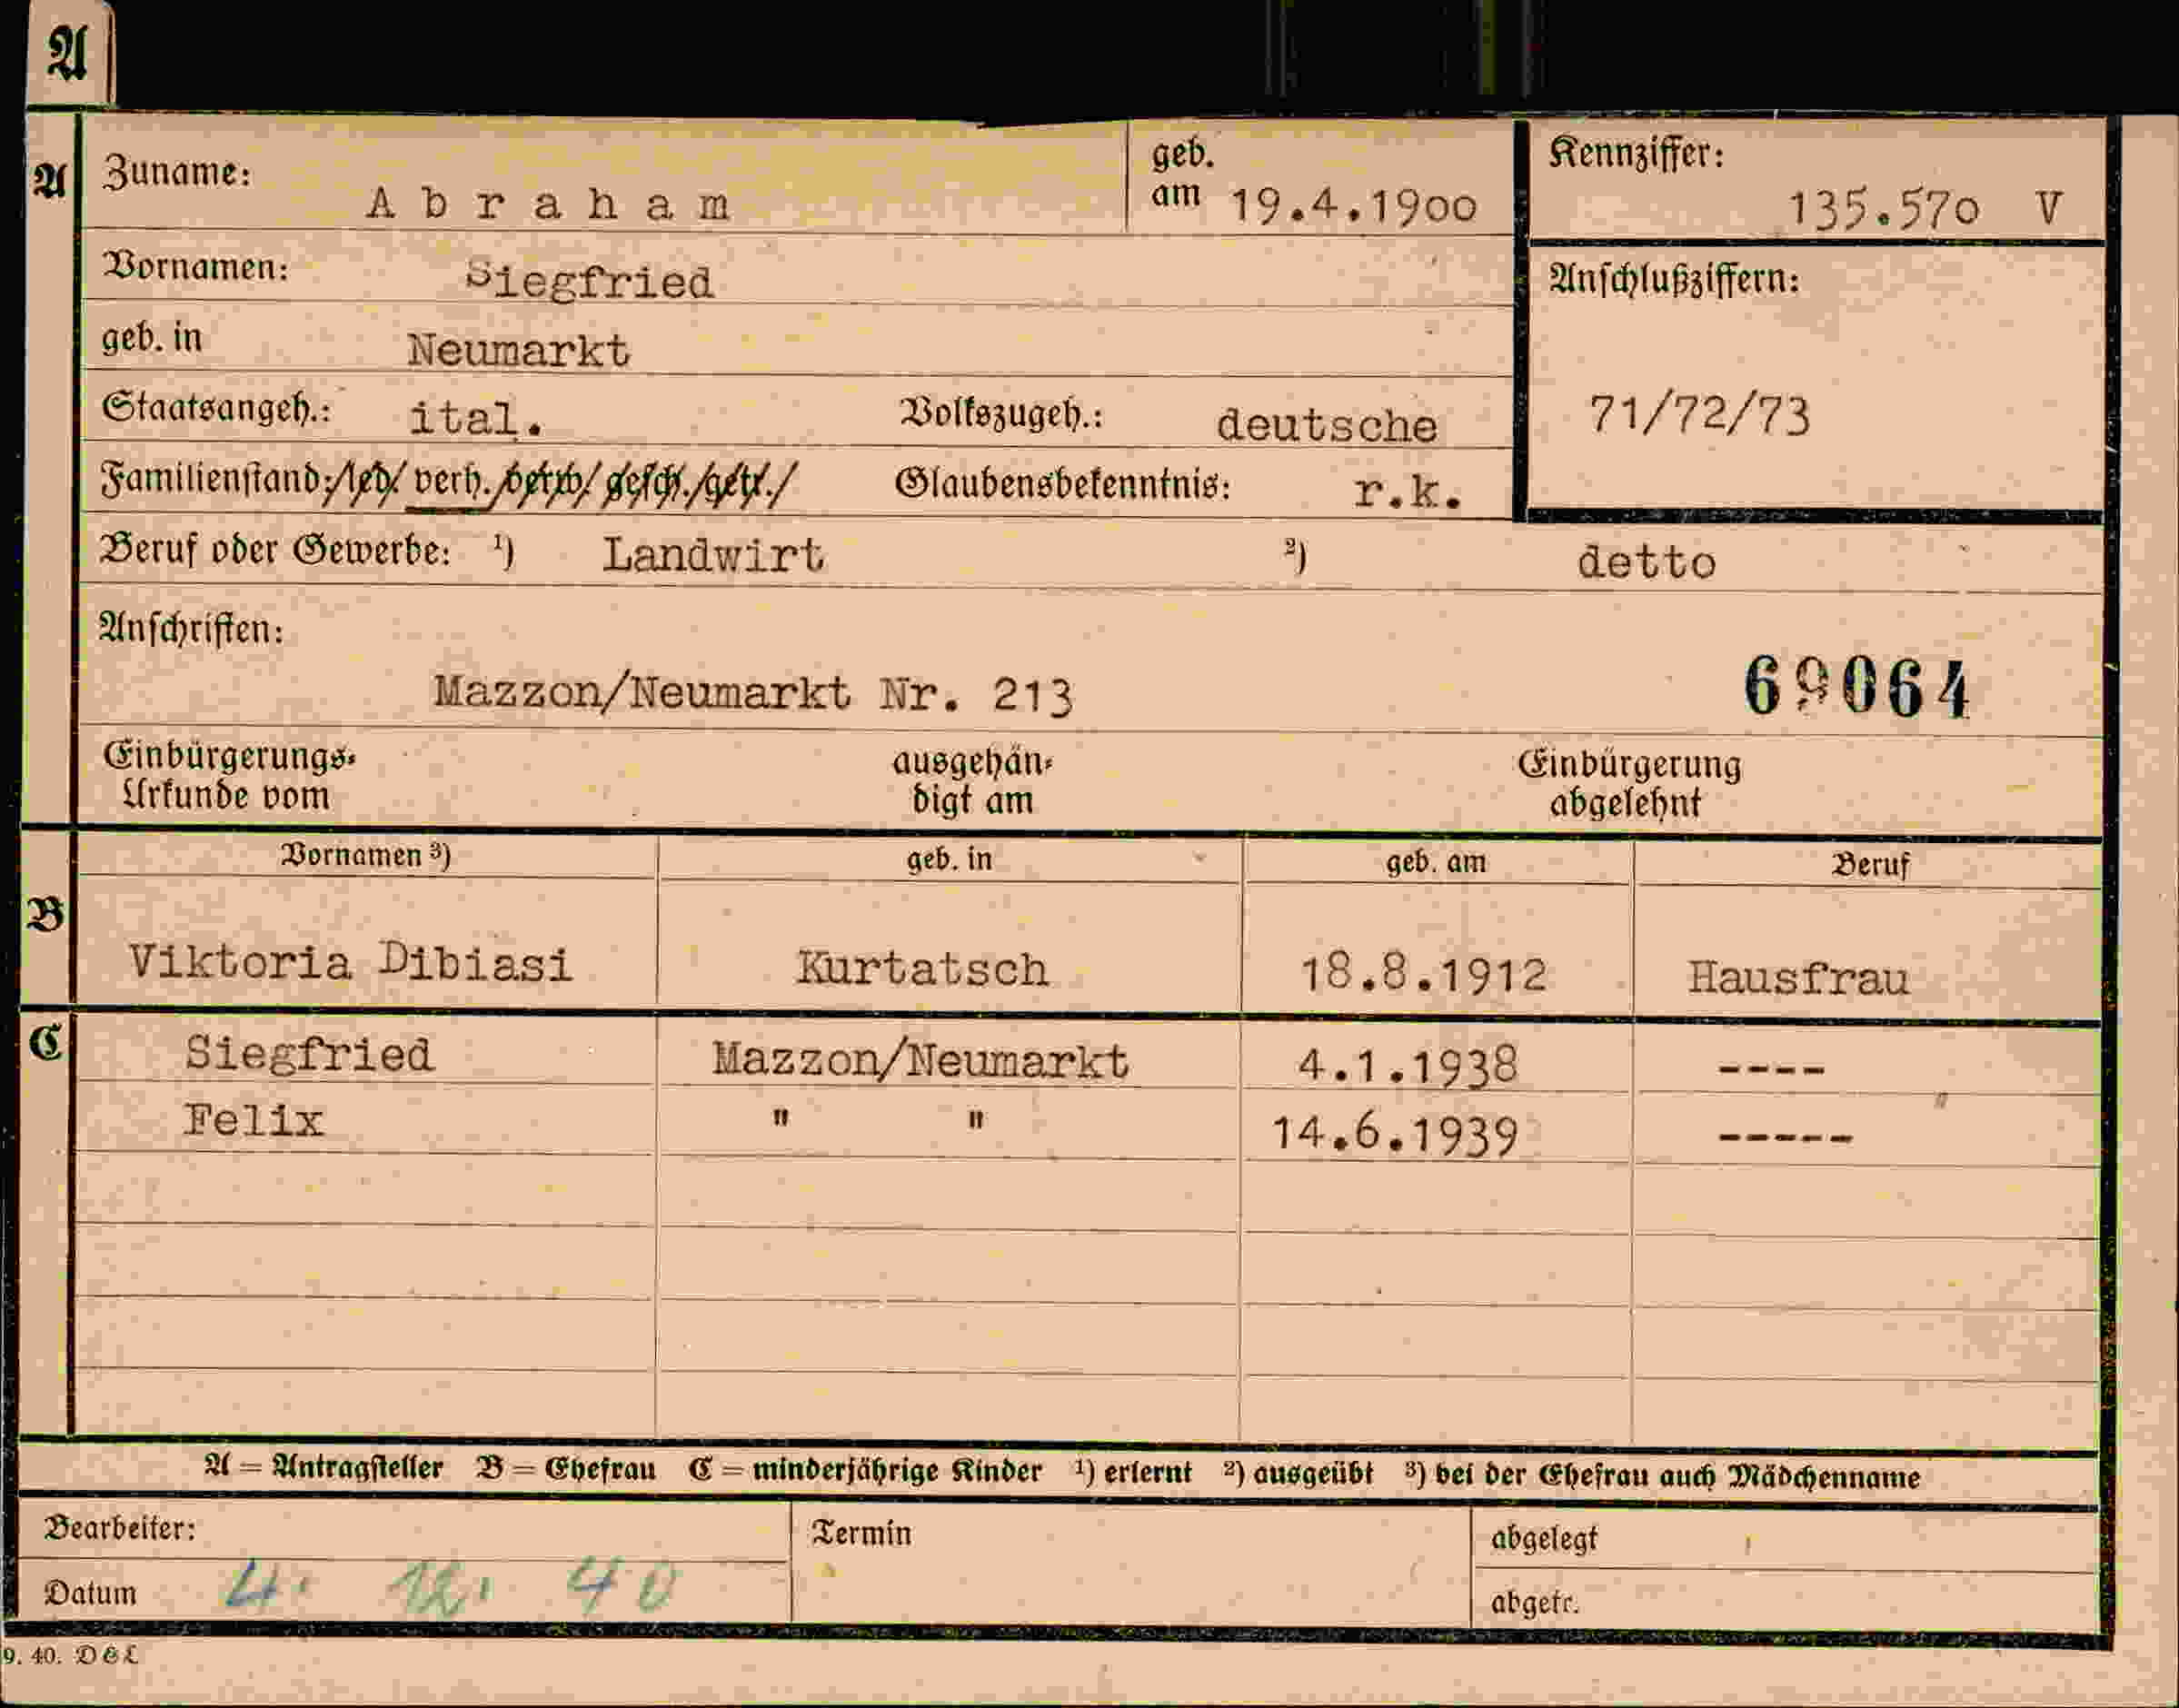 A
A
Zuname: Abraham geb. am 19.4.1900 Kennziffer: 135.570 V
Vornamen: Siegfried Anschlußziffern:
geb. in Neumarkt
Staatsangeh.: ital. Volkszugeh.: deutsche 71/72/73
Familienstand: led. verh. verw. gesch. getr. Glaubensbekenntnis: r.k.
Beruf oder Gewerbe: ¹) Landwirt ²) detto
Anschriften:
Mazzon/Neumarkt Nr. 213 69064
Einbürgerungs- ausgehän- Einbürgerung
Urkunde vom digt am abgelehnt
Vornamen ³) geb. in geb. am Beruf
B
Viktoria Dibiasi Kurtatsch 18.8.1912 Hausfrau
C Siegfried Mazzon/Neumarkt 4.1.1938 ----
Felix " " 14.6.1939 -----
A = Antragsteller B = Ehefrau C = minderjährige Kinder ¹) erlernt ²) ausgeübt ³) bei der Ehefrau auch Mädchenname
Bearbeiter: Termin abgelegt
Datum 4. 12. 40 abgetr.
9. 40. D&L